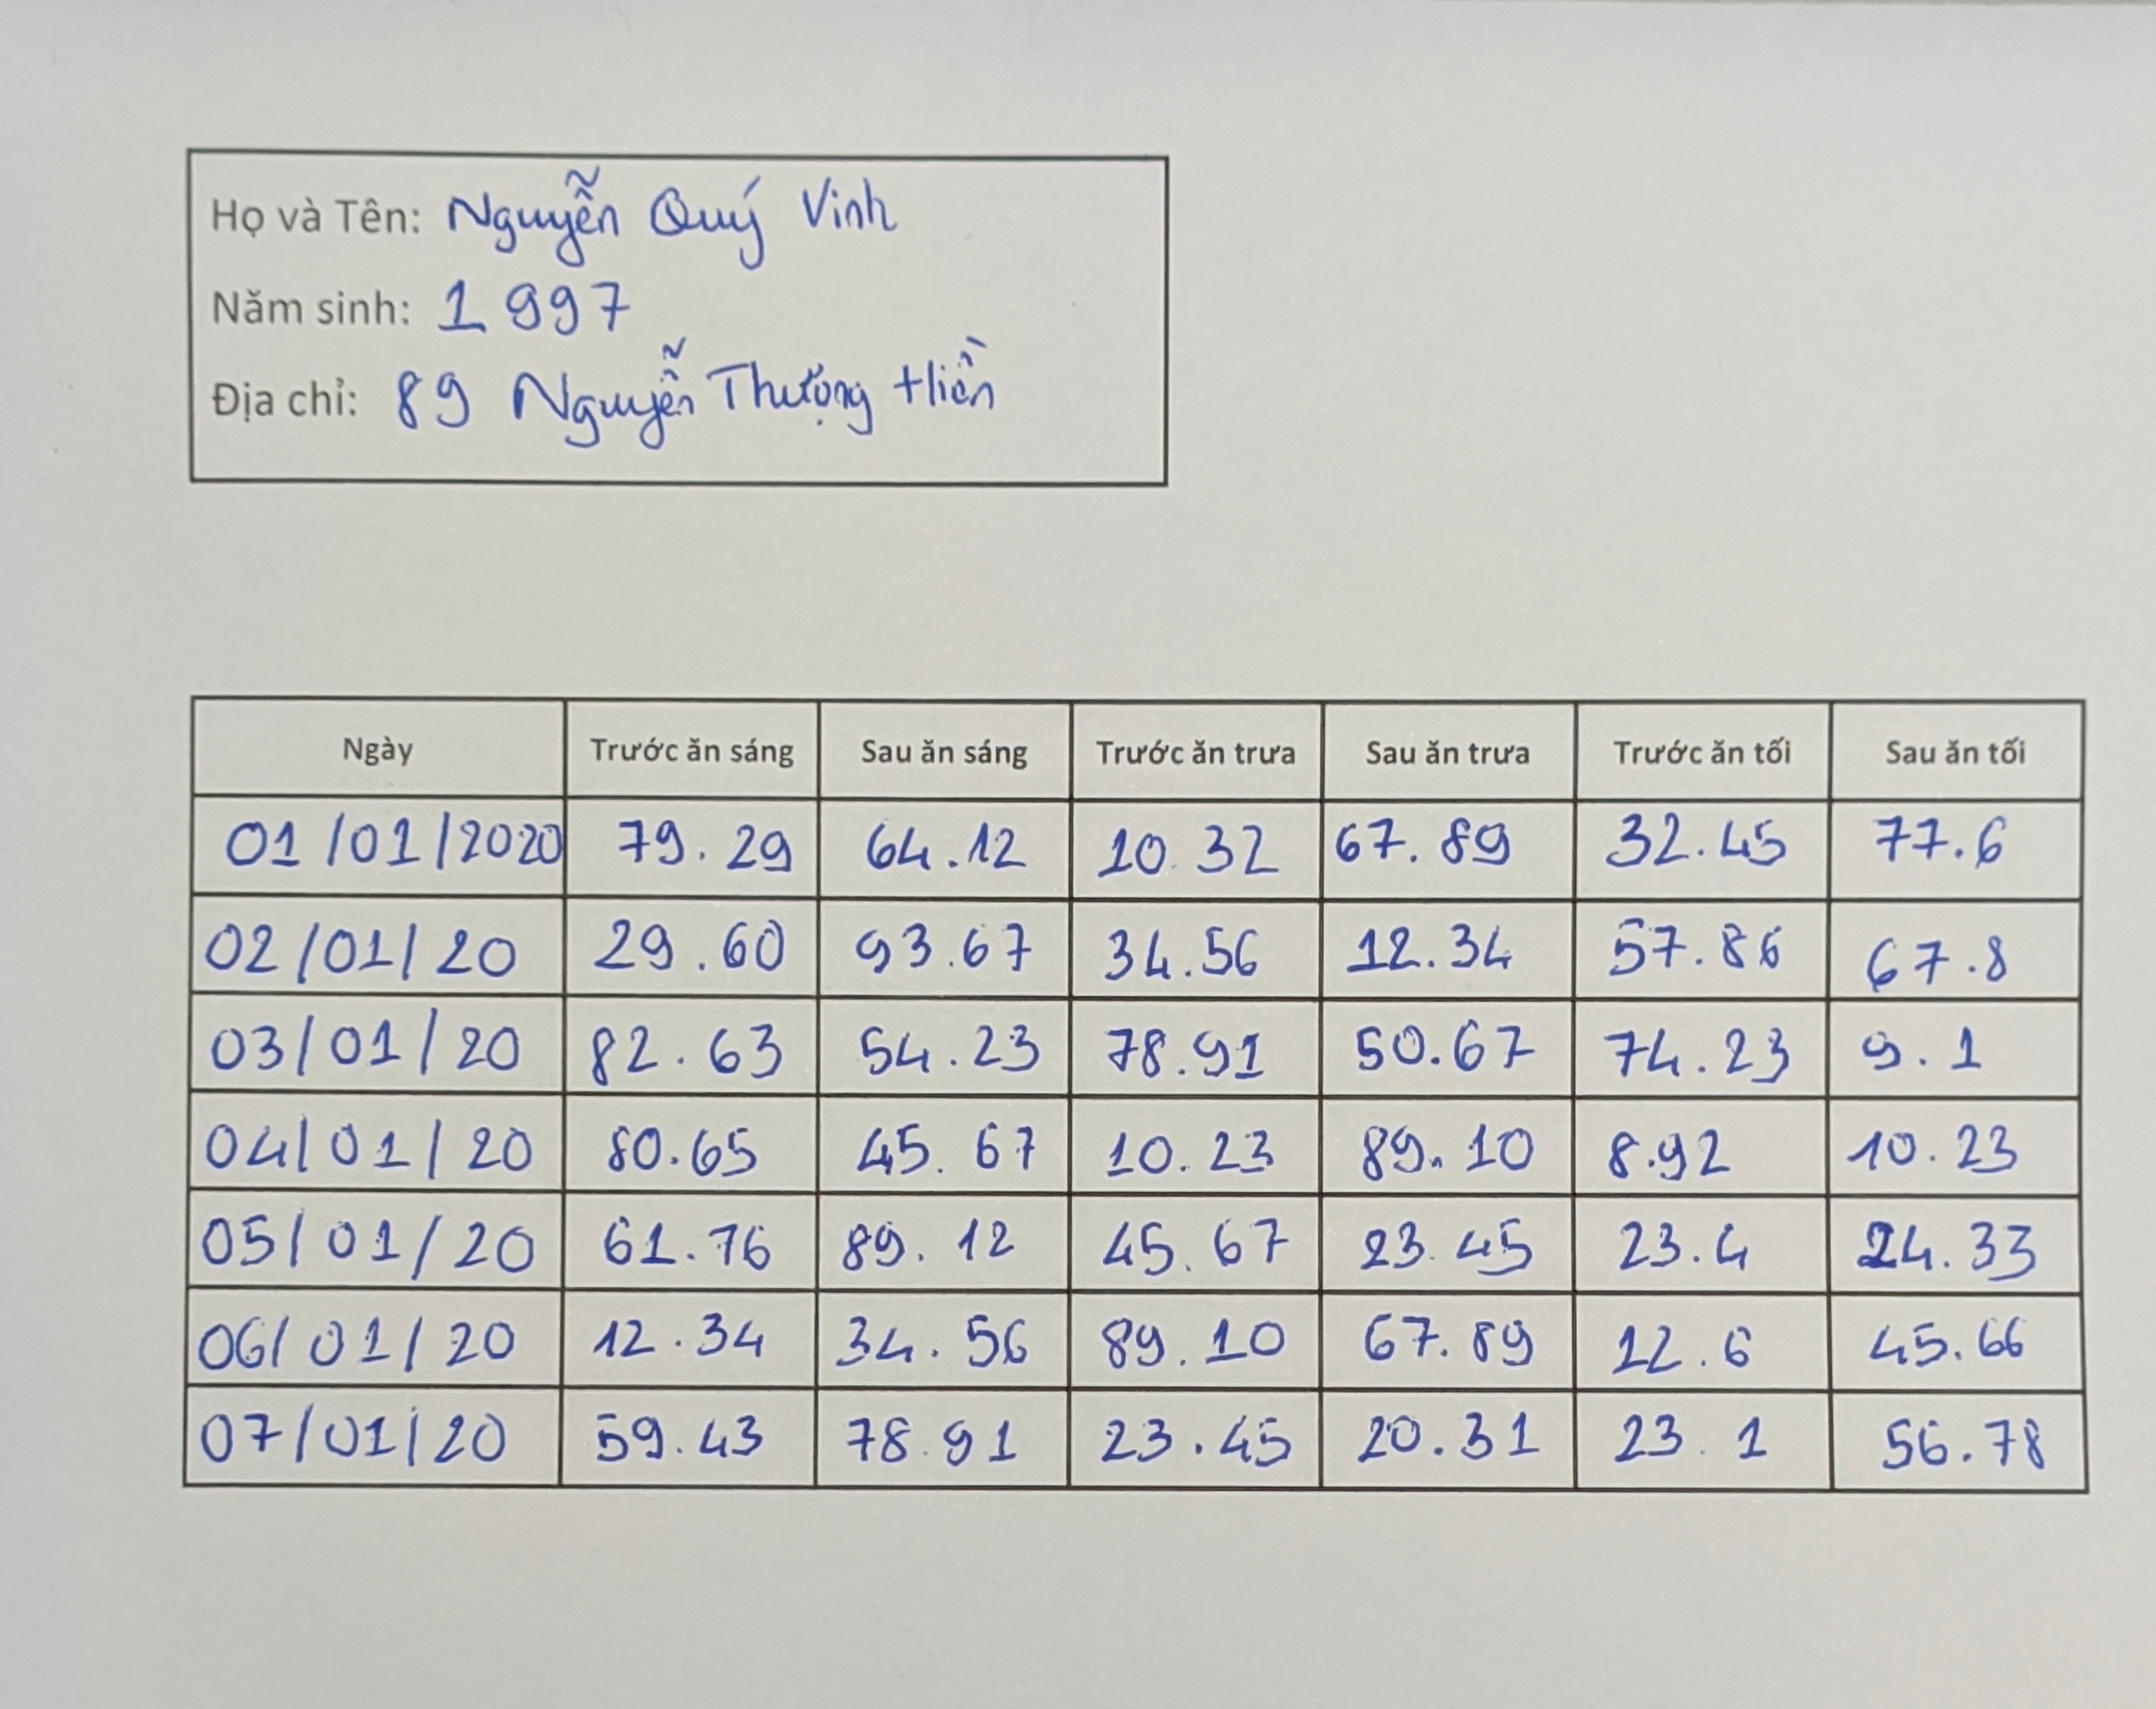 Họ và Tên: Nguyễn Quý Vinh
Năm sinh: 1997
Địa chỉ: 89 Nguyễn Thượng Hiền
Ngày Trước ăn sáng Sau ăn sáng Trước ăn trưa Sau ăn trưa Trước ăn tối Sau ăn tối
01/01/2020 79.29 64.12 10.32 67.89 32.45 77.6
02/01/20 29.60 93.67 34.56 12.34 57.86 67.8
03/01/20 82.63 54.23 78.91 50.67 74.23 9.1
04/01/20 80.65 45.67 10.23 89.10 8.92 10.23
05/01/20 61.76 89.12 45.67 23.45 23.4 24.33
06/01/20 12.34 34.56 89.10 67.89 12.6 45.66
07/01/20 59.43 78.91 23.45 20.31 23.1 56.78